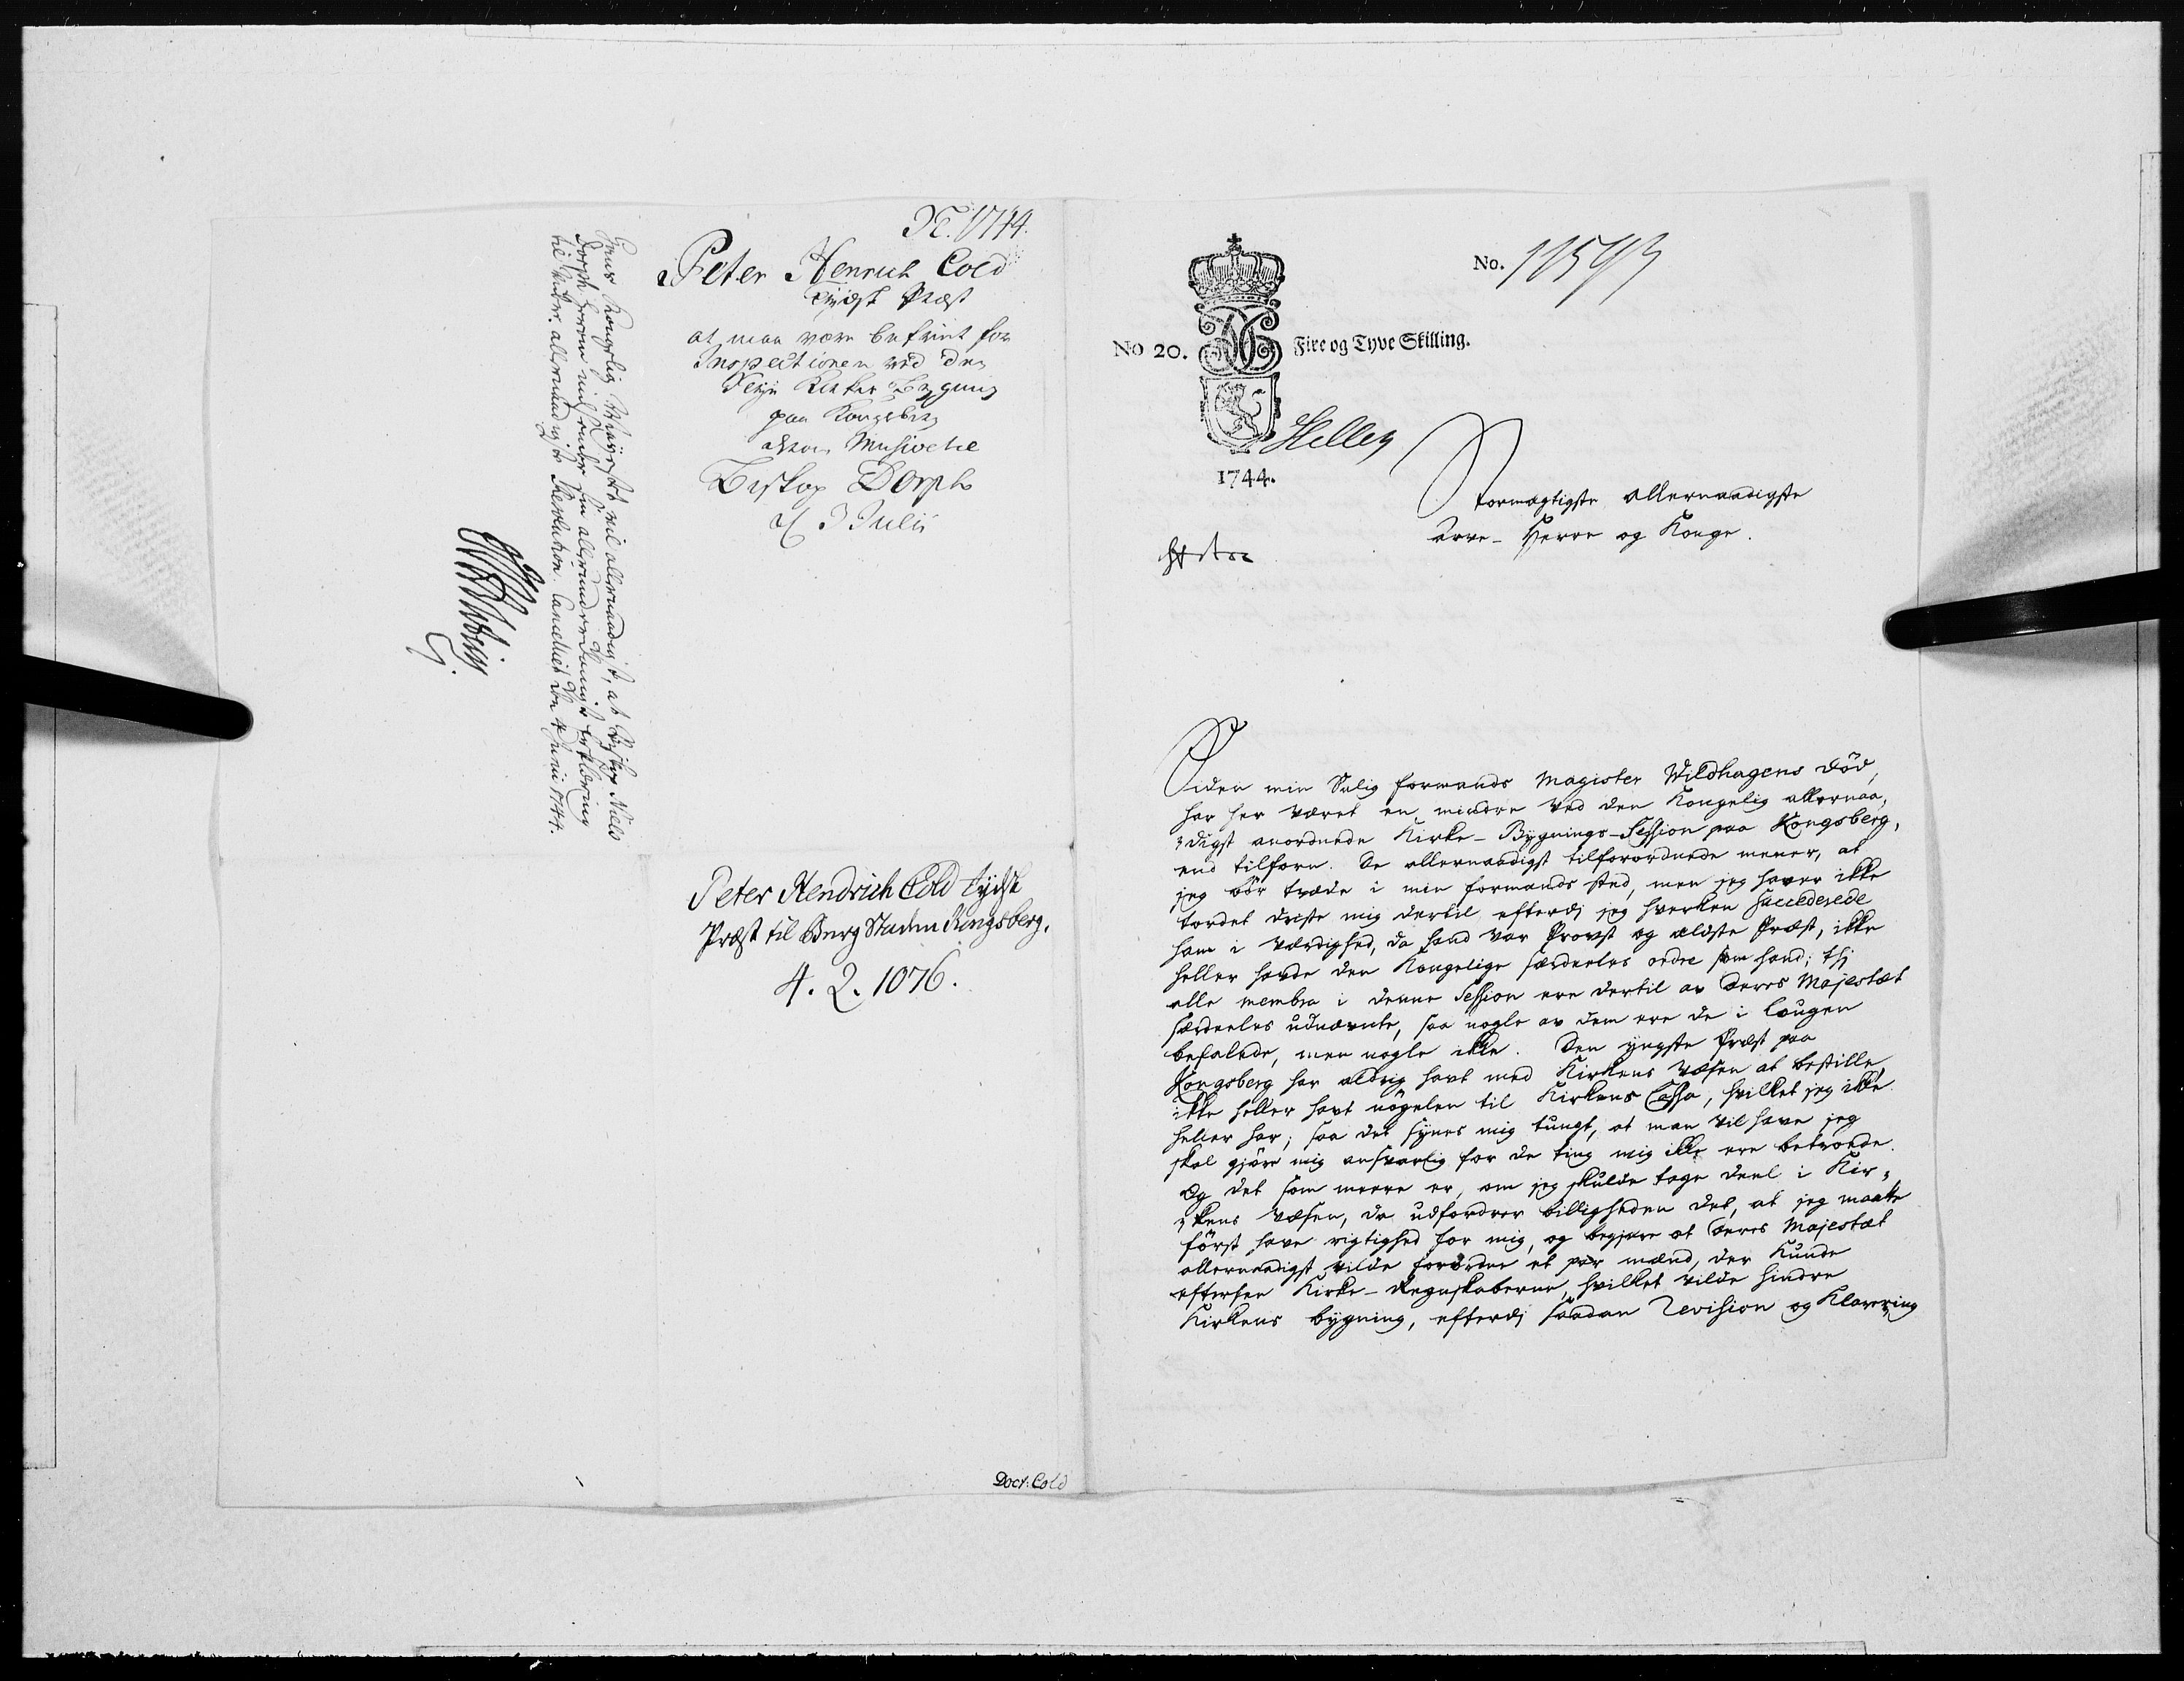 1744.
Peter Henrich Cold
Tydsk Præst
at maa være befriet for
Inspectionen ved den
Nye Kirkes Bygning
paa Kongsberg
Biskop Dorph
3 Julii
Hans Kongelig Mayestet vil allernaadigst, at Biskop Niels
Dorph herom indsender sin allerunderdanigste Erklæring
til videre allernaadigste Resolution. Cancelliet den 4 Junii 1744.
Peter Hendrich Cold tydsk
Præst til Berg Staden Kongsberg.
4. 2. 1076.
Doct: Cold
No. 11593
No 20. Fire og Tyve Skilling.
1744.
Stormægtigste allernaadigste
Arve-Herre og Konge.
Siden min Salig formands Magister Wildhagens död,
har her været en mindre ved den Kongelig allernaa-
digst anordnede Kirke-Bygnings-Session paa Kongsberg,
end tilforn. De allernaadigst tilforordnede mener, at
jeg bör træde i min formands sted, men jeg haver ikke
tordet driste mig dertil efterdi jeg hverken succederede
ham i Værdighed, da hand var Provst og ældste Præst, ikke
heller havde den Kongelige særdeeles ordre som hand; thi
alle membra i denne Session ere dertil av Deres Majestæt
særdeeles udnævnte, saa nogle av dem ere de i Lougen
befalede, men nogle ikke. Den yngste Præst paa
Kongsberg har aldrig havt med Kirkens Væsen at bestille,
ikke heller havt nögelen til Kirkens Cassa, hvilket jeg ikke
heller har; saa det synes mig tungt, at man vil have jeg
skal gjöre mig ansvarlig for de ting mig ikke ere betroede.
Og det som meere er, om jeg skulde tage deel i Kir-
kens Væsen, da udfordrer billigheden det, at jeg maatte
först have rigtighed for mig, og begjære at Deres Majestæt
allernaadigst vilde forordne et par mænd, der kunde
eftersee Kirke-Regnskaberne, hvilket vilde hindre
Kirkens bygning, efterdi saadan Revision og Klarering